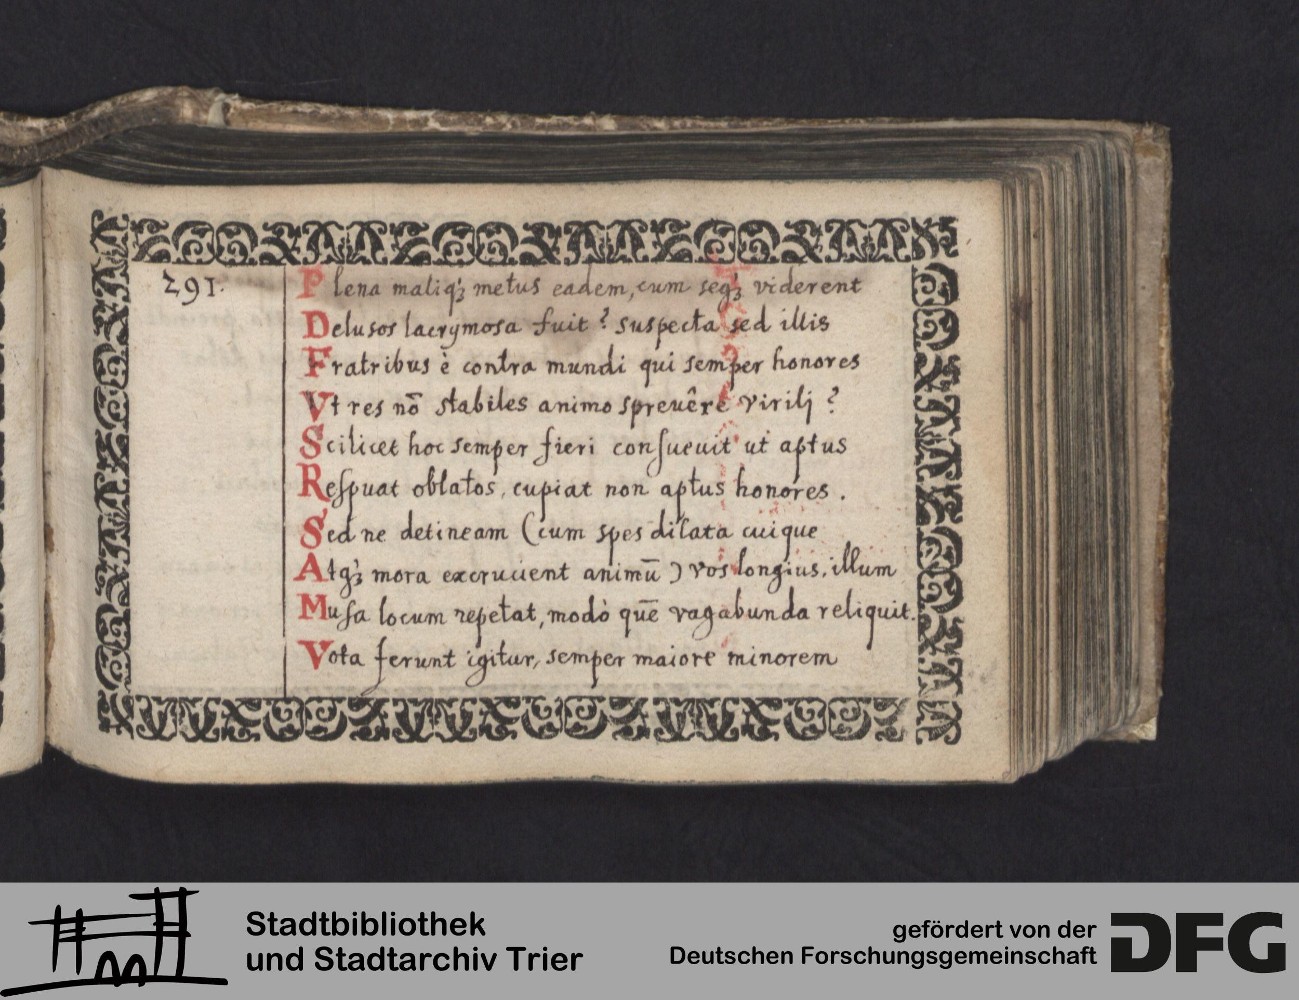 291.
Plena maliq₃ metus eadem, cum seq₃ viderent
Delusos lacrymosa fuit? suspecta sed illis
Fratribus è contra mundi qui semper honores
Vt res nō stabiles animo spreuêre virilj?
Scilicet hoc semper fieri conſueuit ut aptus
Reſpuat oblatos, cupiat non aptus honores.
Sed ne detineam (cum spes dilata cuique
Atq₃ mora excrucient animū) vos longius, illum
Muſa locum repetat, modò quē vagabunda reliquit.
Vota ferunt igitur, semper maiore minorem
Stadtbibliothek
und Stadtarchiv Trier
gefördert von der
Deutschen Forschungsgemeinschaft
DFG